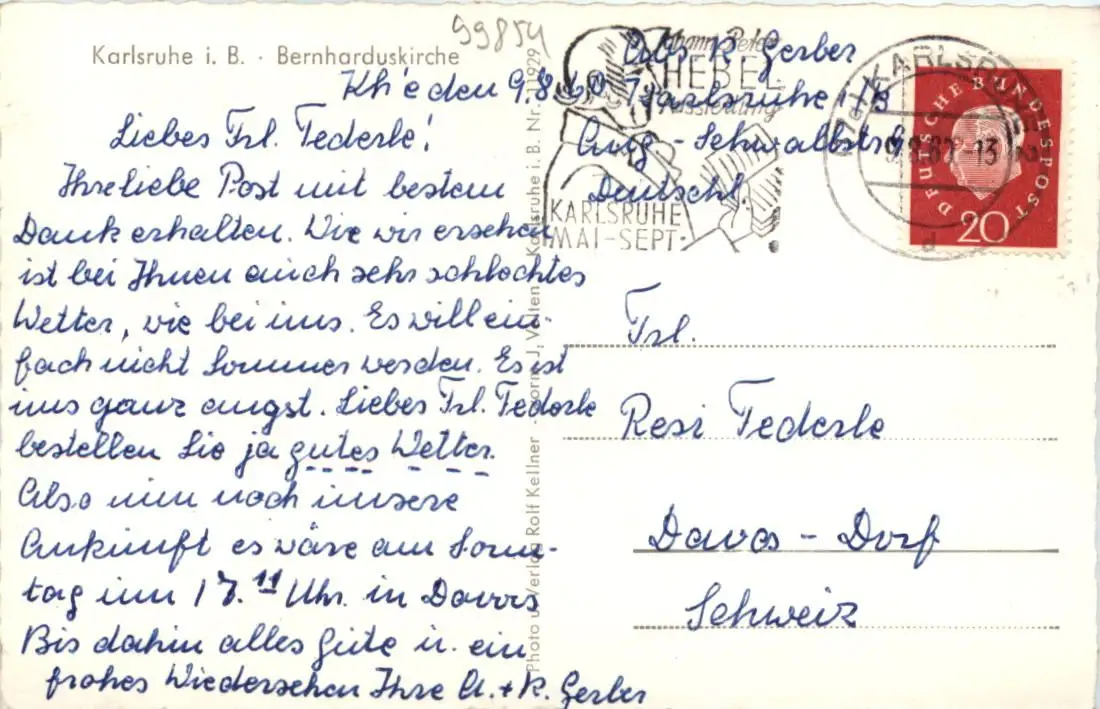 99854
Karlsruhe i. B. · Bernharduskirche
Abs. K. Gerber
Karlsruhe i/B
Aug-Schwalbstr
Deutschl.
Johann Peter
HEBEL
Ausstellung
KARLSRUHE
MAI-SEPT.
KARLSRUHE
9.8.60-13
d
DEUTSCHE BUNDESPOST
20
Kh'e den 9.8.60
Liebes Frl. Federle!
Ihre liebe Post mit bestem
Dank erhalten. Wie wir ersehen
ist bei Ihnen auch sehr schlechtes
Wetter, wie bei uns. Es will ein-
fach nicht Sommer werden. Es ist
uns ganz angst. Liebes Frl. Federle
bestellen Sie ja gutes Wetter.
Also nun noch unsere
Ankunft es wäre am Sonn-
tag um 17.11 Uhr. in Davos
Bis dahin alles Gute u. ein
frohes Wiedersehen Ihre A. + K. Gerber
Photo u. Verlag Rolf Kellner · vorm. J. Velten · Karlsruhe i. B. Nr. 1929
Frl.
Resi Federle
Davos - Dorf
Schweiz